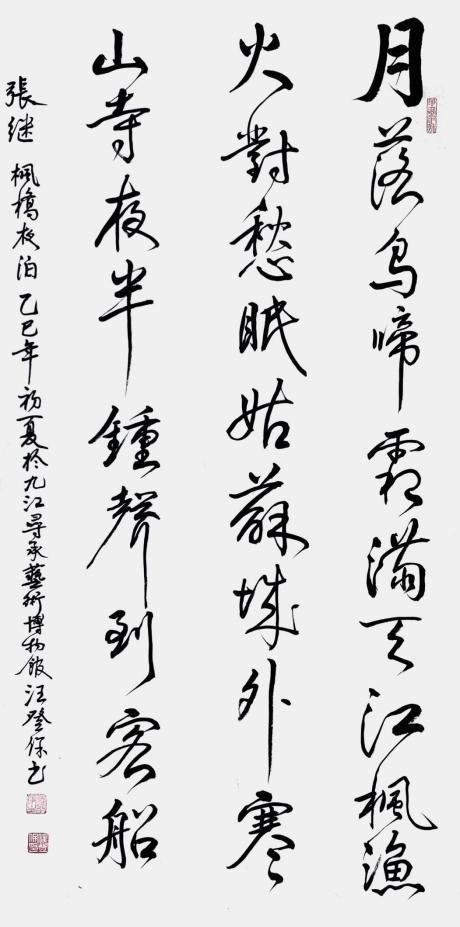 月落烏啼霜滿天江楓漁
火對愁眠姑蘇城外寒
山寺夜半鍾聲到客船
張继 楓橋夜泊 乙巳年初夏於九江尋承藝術博物館汪登保書